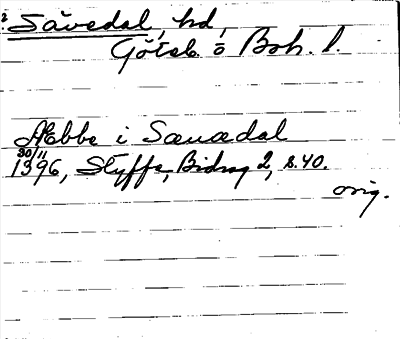 Sävedal, hd,
Göteb. o Boh. l.
Æbbe i Sæuædal
30/11
1396, Styffe, Bidrag 2, s. 40.
orig.